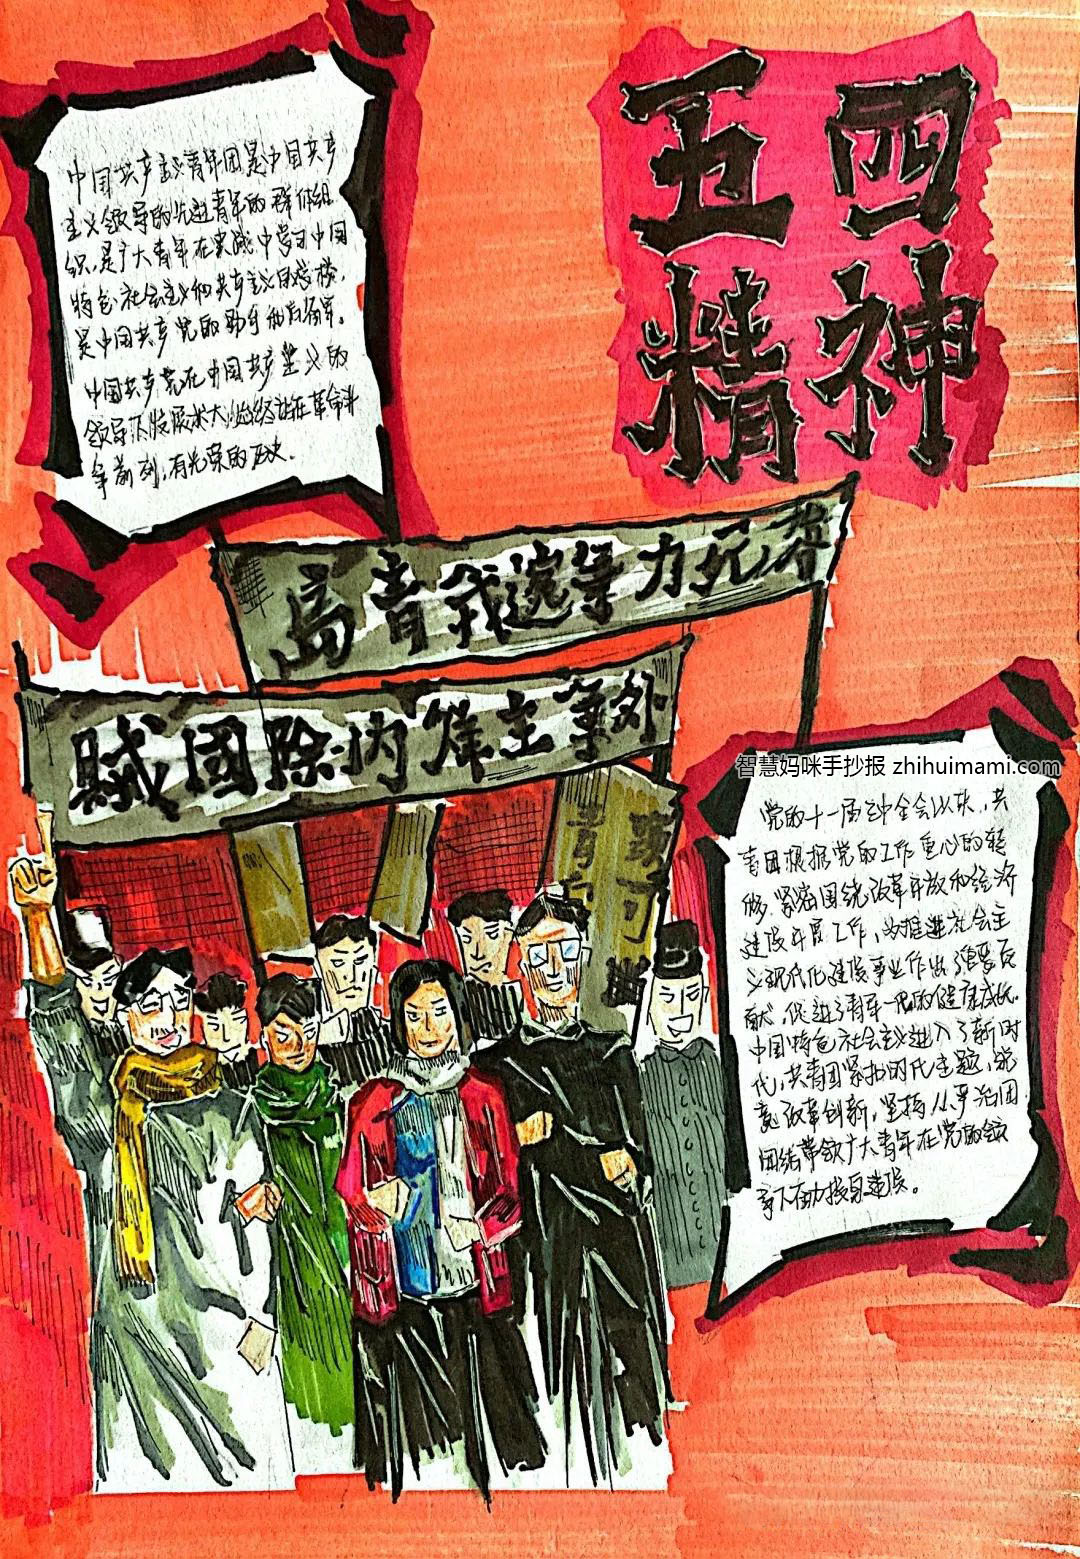 中国共产主义青年团是中国共产
主义领导的先进青年的群体组
织,是广大青年在实践中学习中国
特色社会主义和共产主义的学校,
是中国共产党的助手和后备军。
中国共产党在中国共产主义的
领导下发展求大始终站在革命斗
争前列,有光荣的历史.
五四
精神
青我還力死
賊國除内主爭外
智慧妈咪手抄报 zhihuimami.com
党的十一届三中全会以来,共
青团根据党的工作重心的转
移,紧密围绕改革开放和经济
建设开展工作,为推进社会主
义现代化建设事业作出了重要贡
献,促进了青年一代的健康成长.
中国特色社会主义进入了新时
代,共青团紧扣时代主题,锐
意改革创新,坚持从严治团.
团结带领广大青年在党的领
导下在投身建设。